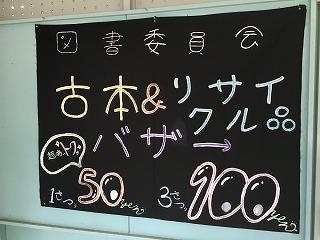 図書委員会
古本&リサイクル品
バザー
1さつ 50yen
3さつ 100yen